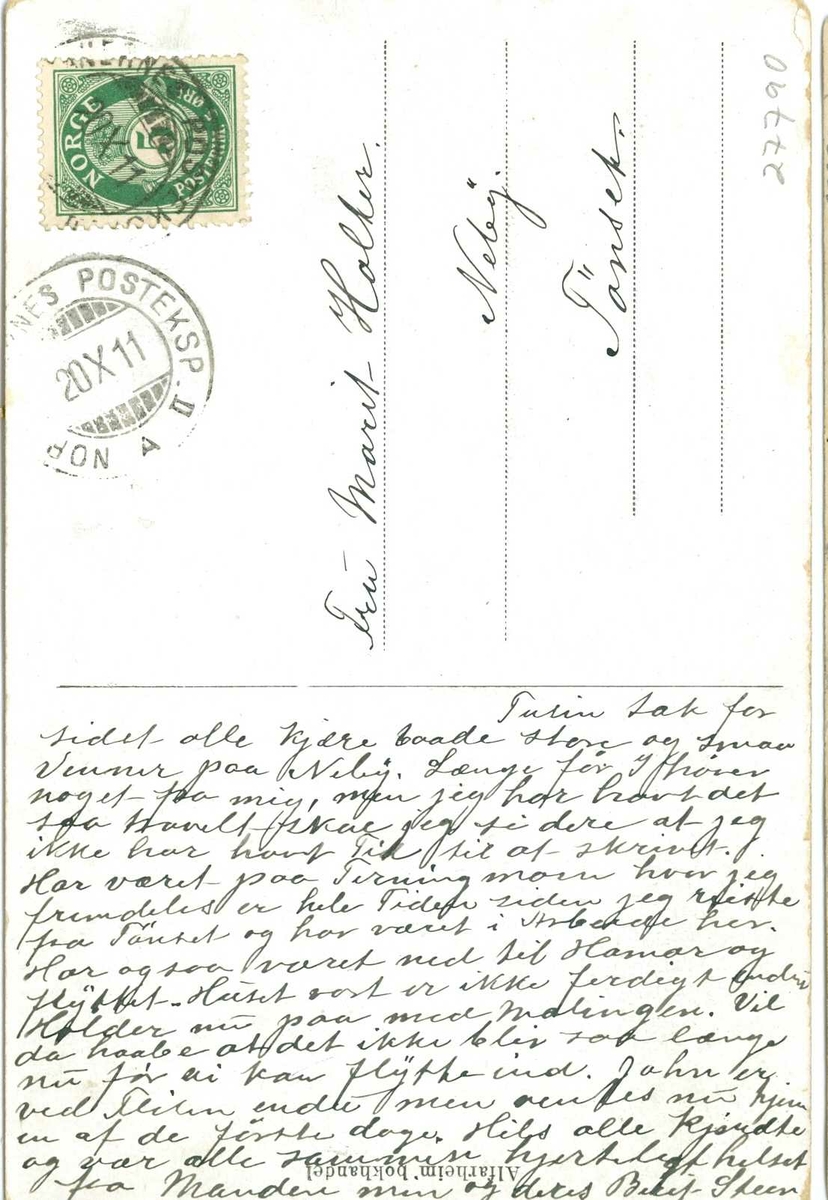 27790
NORGE
5
POSTFRIM. ØRE
NES POSTEKSP. II
20 X 11
A
NOR
Fru Marit Holter.
Neby.
Tönset.
Tusin tak for
sidst alle kjære baade store og smaa
Venner paa Neby. Længe før I hører
noget fra mig, men jeg har havt det
saa travelt skal jeg si dere at jeg
ikke har havt Tid til at skrive.
Har været paa Terningmoen hvor jeg
fremdeles er hele Tiden siden jeg reiste
fra Tönset og har været i Arbeide her.
Har ogsaa været ned til Hamar og
flyttet. Huset vort er ikke ferdigt endu
Holder nu paa med Malingen. Vil
da haabe at det ikke blir saa længe
nu før vi kan flytte ind. John er
ved endu men ventes nu hjem
en af de første dage. Hils alle Kjendte
og vær alle sammen hjerteligt hilset
fra Manden min og deres Steen
Alfarheim bokhandel